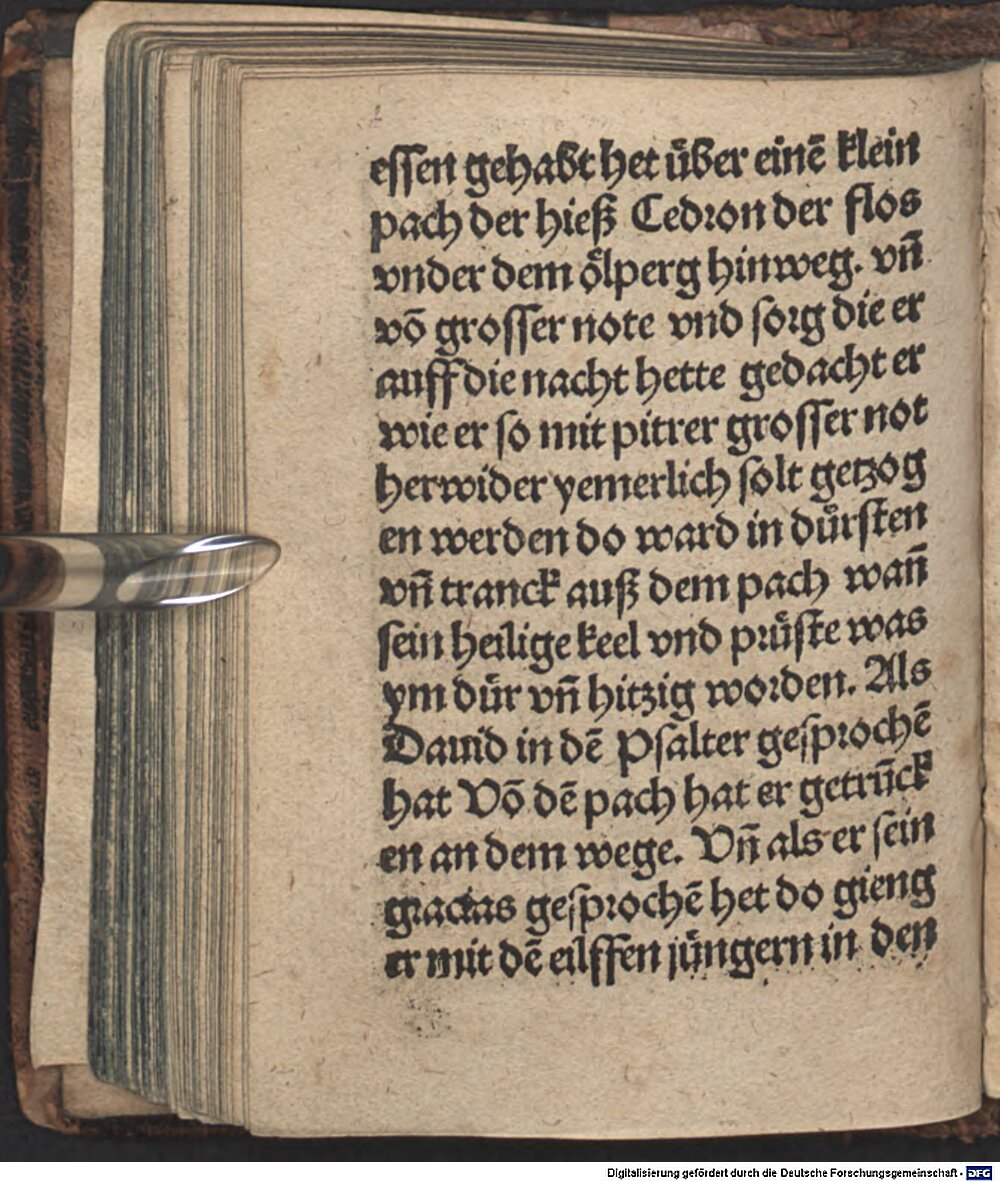 essen gehabt het über einē klein
pach der hieß Cedron der flos
vnder dem ölperg hinweg. vn̄
vō grosser note vnd sorg die er
auff die nacht hette gedacht er
wie er so mit pitrer grosser not
herwider yemerlich solt getzog
en werden do ward in dürsten
vn̄ tranck auß dem pach wan̄
sein heilige keel vnd prüste was
ym dür vn̄ hitzig worden. Als
Dauid in dē Psalter gesprochē
hat Vō dē pach hat er getrūck
en an dem wege. Vn̄ als er sein
gracias gesprochē het do gieng
er mit dē eilffen jüngern in den
Digitalisierung gefördert durch die Deutsche Forschungsgemeinschaft - DFG